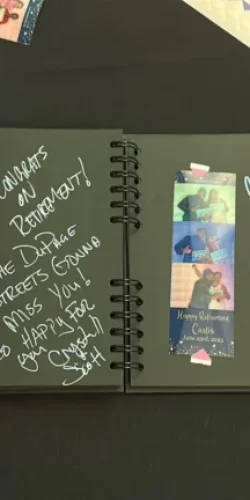 CONGRATS
ON
RETIREMENT!
THE DUPAGE
STREETS GOUNNA
MISS YOU!
SO HAPPY FOR
you Crystal!
Scott
Happy Retirement
Curtis